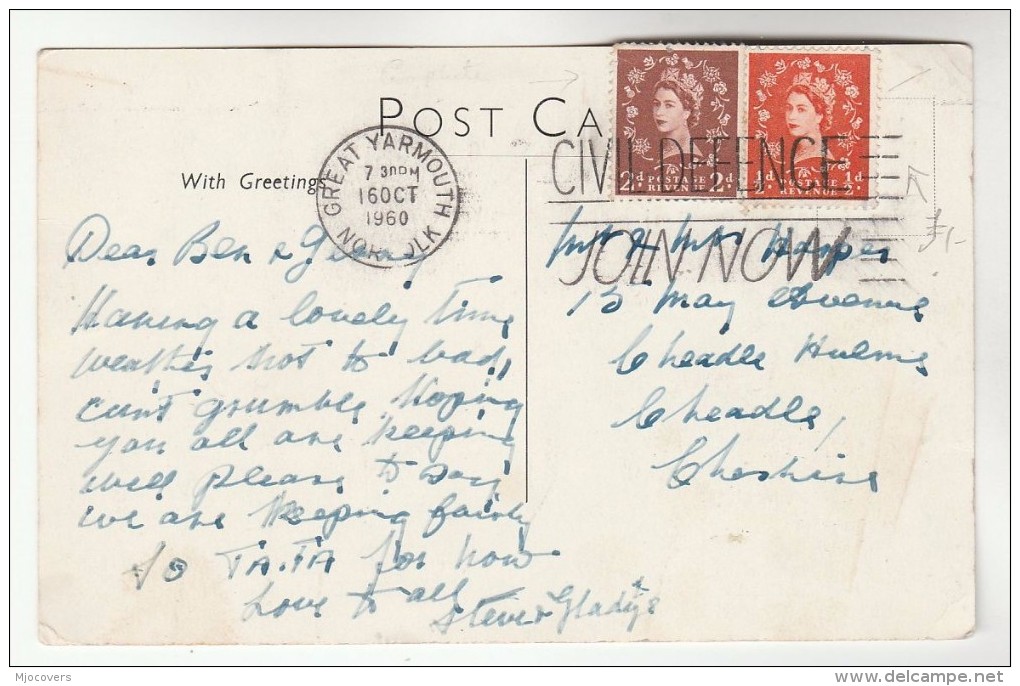 POST CA
With Greetings
GREAT YARMOUTH
7 30PM
16 OCT
1960
NORFOLK
CIVIL DEFENCE
JOIN NOW
2d. POSTAGE REVENUE 2d.
½d. POSTAGE REVENUE ½d.
Dear Ben &
Having a lovely time
weather not to bad,
cant grumble Hoping
you all are keeping
well please to say
we are keeping fairly
so TA.TA for now
Love to all
Steve & Gladys
Mr & Mrs
13 May Avenue
Cheadle Hulme
Cheadle,
Cheshire
£1-
Mjocovers
delcampe.net